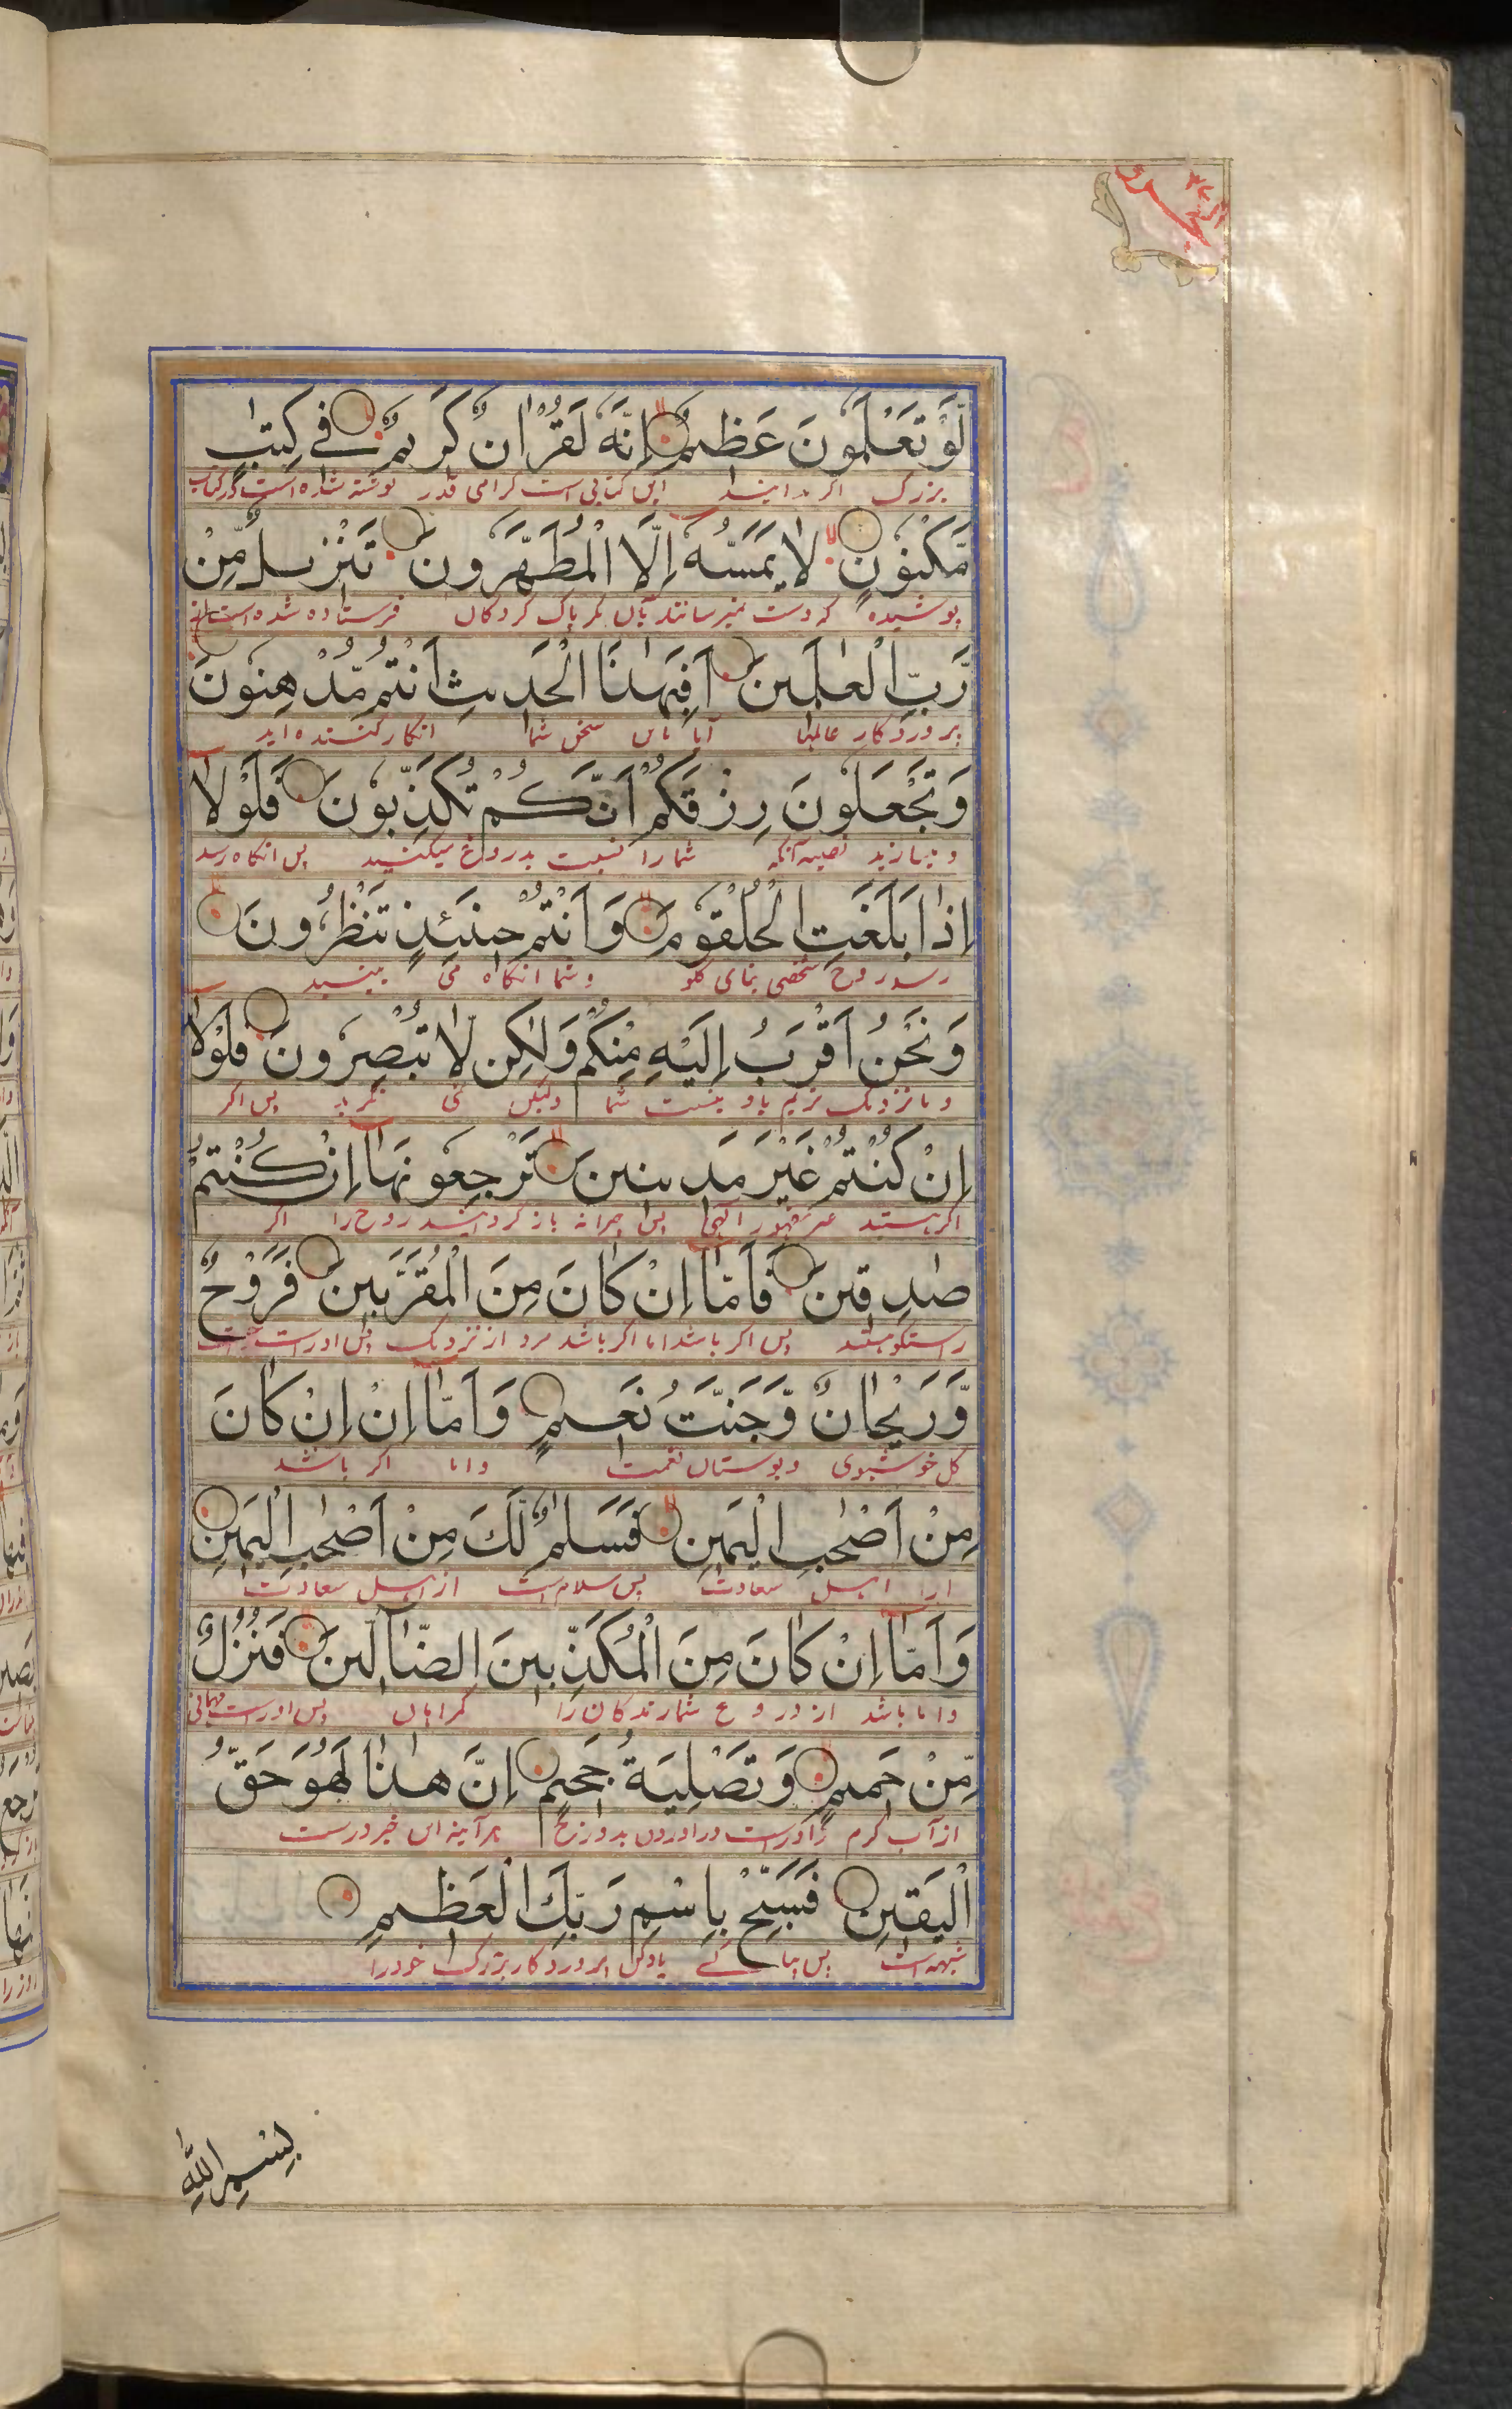 لَّوْ تَعْلَمُونَ عَظِیْمٌ اِنَّهٗ لَقُرْاٰنٌ كَرِیْمٌ فِیْ كِتٰبٍ
بزرک اکر دانید این کتابی است کرامی قدر نوشته شده است در کتاب
مَّكْنُوْنٍ لَا یَمَسُّهٗۤ اِلَّا الْمُطَهَّرُوْنَ تَنْزِیْلٌ مِّنْ
پوشیده که دست نمیرسانند بآن مکر پاک کردکان فرستاده شده است
رَّبِّ الْعٰلَمِیْنَ اَفَبِهٰذَا الْحَدِیْثِ اَنْتُمْ مُّدْهِنُوْنَ
پروردکار عالمها آیا باین سخن شما انکار کننده اید
وَ تَجْعَلُوْنَ رِزْقَكُمْ اَنَّكُمْ تُكَذِّبُوْنَ فَلَوْلَاۤ
شما را نسبت بدروغ میکنید پس انکاه رسد
اِذَا بَلَغَتِ الْحُلْقُوْمَ وَ اَنْتُمْ حِیْنَئِذٍ تَنْظُرُوْنَ
رسد روح شخصی بنای کلو و شما انکاه می بینید
وَ نَحْنُ اَقْرَبُ اِلَیْهِ مِنْكُمْ وَ لٰكِنْ لَّا تُبْصِرُوْنَ فَلَوْلَاۤ
و ما نزدیک تریم باو بنسبت شما ولیکن نمی پس اکر
اِنْ كُنْتُمْ غَیْرَ مَدِیْنِیْنَ تَرْجِعُوْنَهَاۤ اِنْ كُنْتُمْ
اکر هستید غیر مقهور الهی پس چرا نه باز کردانید روح را اکر
صٰدِقِیْنَ فَاَمَّاۤ اِنْ كَانَ مِنَ الْمُقَرَّبِیْنَ فَرَوْحٌ
راستکو هستید پس اکر باشد اما اکر باشد مرد از نزدیک پس اوراست
وَّ رَیْحَانٌ وَّ جَنَّتُ نَعِیْمٍ وَ اَمَّاۤ اِنْ اِنْ كَانَ
کل خوشبوی و بوستان نعمت و اما اکر باشد
مِنْ اَصْحٰبِ الْیَمِیْنِ فَسَلٰمٌ لَّكَ مِنْ اَصْحٰبِ الْیَمِیْنِ
اهل سعادت پس سلام است از اهل سعادت
وَ اَمَّاۤ اِنْ كَانَ مِنَ الْمُكَذِّبِیْنَ الضَّآلِّیْنَ فَنُزُلٌ
و اما باشد از دروغ شمارندکان را کمراهان پس اوراست مهمانی
مِّنْ حَمِیْمٍ وَّ تَصْلِیَةُ جَحِیْمٍ اِنَّ هٰذَا لَهُوَ حَقُّ
از آب کرم در اوردن بدوزخ هر آینه این خبر درست
الْیَقِیْنِ فَسَبِّحْ بِاسْمِ رَبِّكَ الْعَظِیْمِ
شبهه است پس یاد کن پروردکار بزرک خود را
بِسْمِ اللّٰهِ